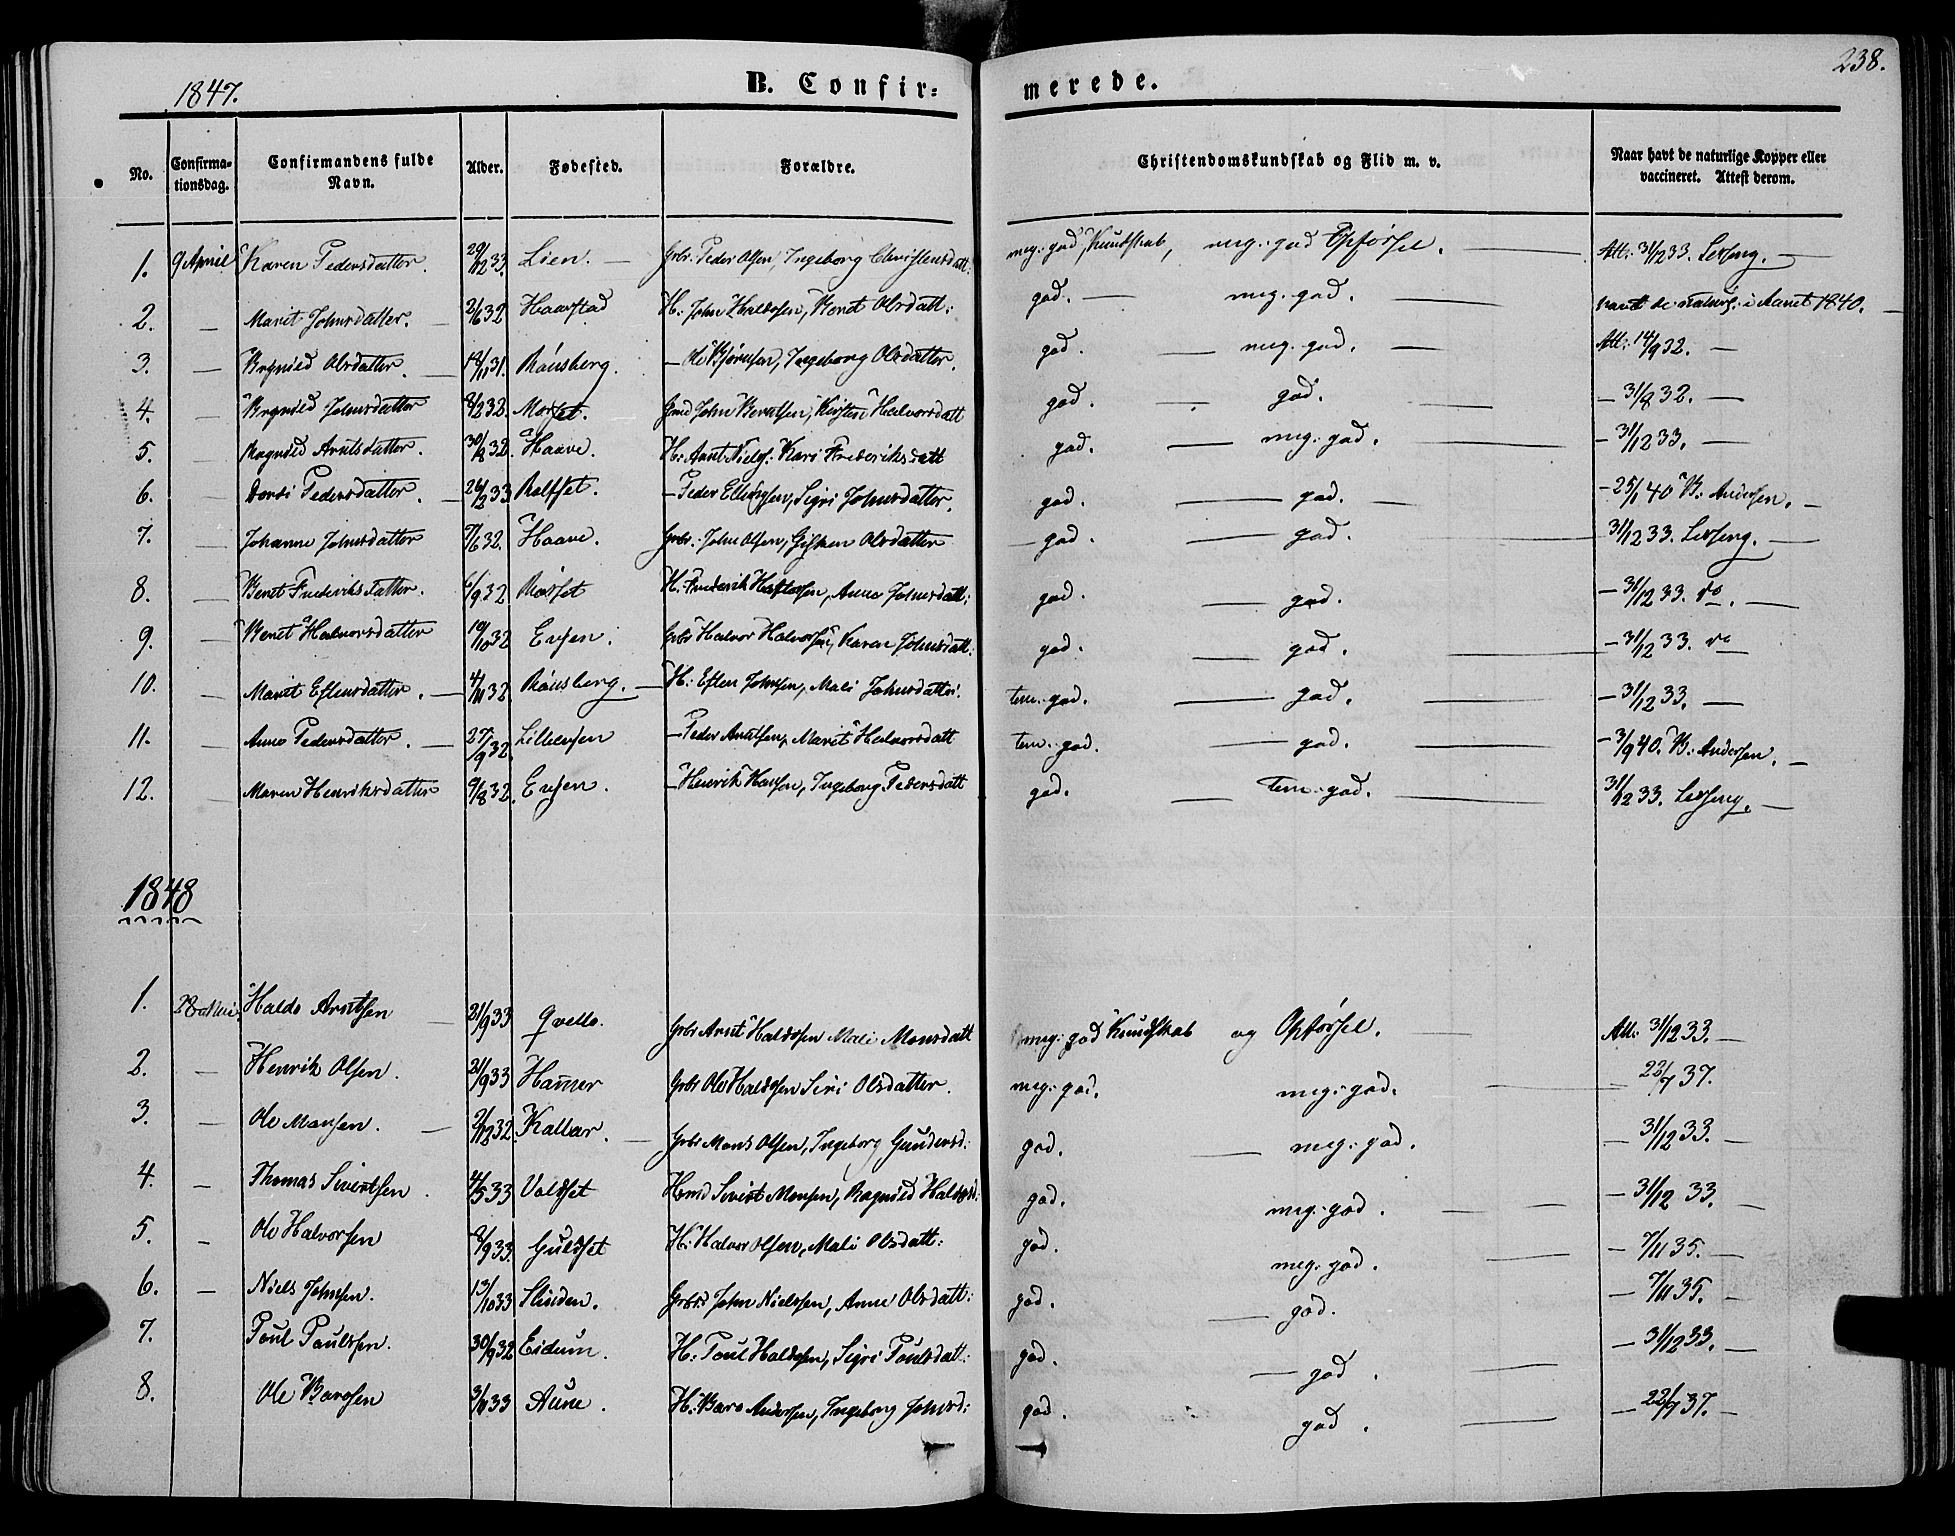 1847. B. Confir= merede. 238.
No. Confirma-tionsdag. Confirmandens fulde Navn. Alder. Fødested. Forældre. Christendomskundskab og Flid m. v. Naar havt de naturlige Kopper eller vaccineret. Attest derom.
1. 9 April Karen Pedersdatter. 29/12 33. Lien. — Grbr. Peder Olsen, Ingeborg Christensdatt: meg: god Kundskab, meg: god Opførsel. — Att: 31/12 33. Lessing. —
2. — Marit Johnsdatter. — 2/6 32 Haarstad H: John Haldosen, Beret Olsdatt: god. — meg. god. — havt de naturl: i Aaret 1840. —
3. — Brynild Olsdatter. — 18/11 31. Rønsberg. — Ole Bjørnsen, Ingeborg Olsdatter. god. — meg. god. — Att: 14/9 32. —
4. — Brynild Johnsdatter 8/2 32. Morset. John Berntsen, Kirsten Halvorsdatt god. — god. — — 31/8 32. —
5. — Magnild Arntsdatter. 30/8 32. Haave. H: Arnt Niels: Kari Frederiksdatt god. — meg: god. — — 31/12 33. —
6. — Dordi Pedersdatter. — 26/2 33 Rolfset. — Peder Ellingsen, Sigri Johnsdatter. god. — god. — — 25/1 40 B: Andersen. —
7. — Johanne Johnsdatter 7/6 32. Haave. Grbr: John Olsen, Gisken Olsdatter — god. — god. — 31/12 33. Lessing. —
8. — Beret Frederiksdatter. 6/9 32 Rosset H: Frederik Haftorsen, Anne Johnsdatt: god. — god. — 31/12 33. do. —
9. — Beret Halvorsdatter 19/10 32 Evjen. Grbr Halvor Halvorsen, Karen Johnsdatt: god. — god. — — 31/12 33. do
10. — Marit Estensdatter. — 4/11 32. Rønsberg. — H: Esten Johnsen, Mali Johnsdatter. tem. god. — god. — — 31/12 33. —
11. — Anne Pedersdatter. — 27/9 32. Lilleevjen — Peder Arntsen, Marit Halvorsdatt tem. god. — god. — — 3/9 40. B: Andersen. —
12. Maren Henriksdatter 9/8 32. Evjen. — Henrik Hansen, Ingeborg Pedersdatt god. — tem. god. — 31/12 33. Lessing. —
1848
1. Haldo Arntsen — 21/9 33 Qvello. Grbr Arnt Haldosen Mali Monsdatt meg: god Kundskab og Opførsel. — Att: 31/12 33. —
2. — Henrik Olsen. 21/9 33 Hamer Grbr Ole Haldosen Siri Olsdatter. meg: god. meg: god. — 22/7 37.
3. — Ole Monsen. — 32. Kallar. — Grbr Mons Olsen, Ingeborg Gundersd: god. — meg: god. — 31/12 33. —
4. — Thomas Sivertsen. 4/5 33 Voldset Hmd Sivert Monsen, Ragnild Haldosd: god. meg: god. — — 31/12 33. —
5. — Ole Halvorsen 8/9 33. Guldset H: Halvor Olsen, Mali Olsdatt: god. meg. god. — — 7/11 35. —
6. — Niels Johnsen. 13/10 33 Slinden. Grbr: John Nielssen, Anne Olsdatt: god. — god. — 7/11 35. —
7. Poul Poulsen. 30/9 32 Eidum. H: Poul Haldosen, Sigri Poulsdatt: god. — god. — — 31/12 33. —
8. Ole Barosen 3/11 33 Aune. H: Baro Andersen, Ingeborg Johnsd: god. god. — — 22/7 37. —